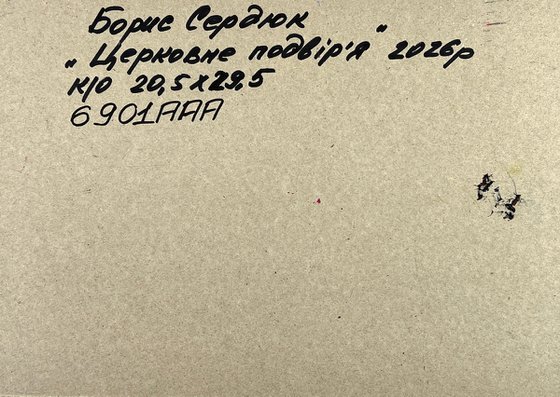 Борис Сердюк
„Церковне подвір'я" 2026р
к/о 20,5х29,5
6901AAA